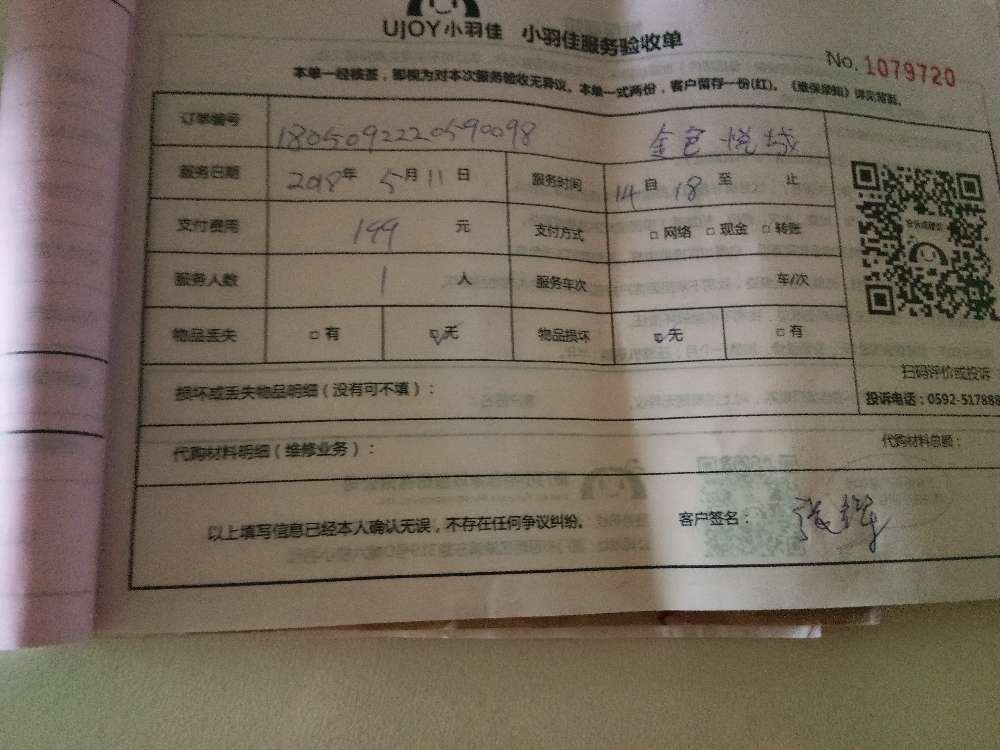 UJOY小羽佳 小羽佳服务验收单
No. 1079720
本单一经核签，即视为对本次服务验收无异议。本单一式两份，客户留存一份(红)。《维保须知》详见背面。
订单编号 1805092220590098 金色悦城
服务日期 2018年 5月 11日 服务时间 14自 18至 止
支付费用 199 元 支付方式 □ 网络 □ 现金 □ 转账
服务人数 1 人 服务车次 车/次
物品丢失 □ 有 ☑ 无 物品损坏 ☑ 无 □ 有
扫码评价或投诉
损坏或丢失物品明细（没有可不填）：
投诉电话：0592-517888
代购材料明细（维修业务）：
代购材料总额：
以上填写信息已经本人确认无误，不存在任何争议纠纷。 客户签名：